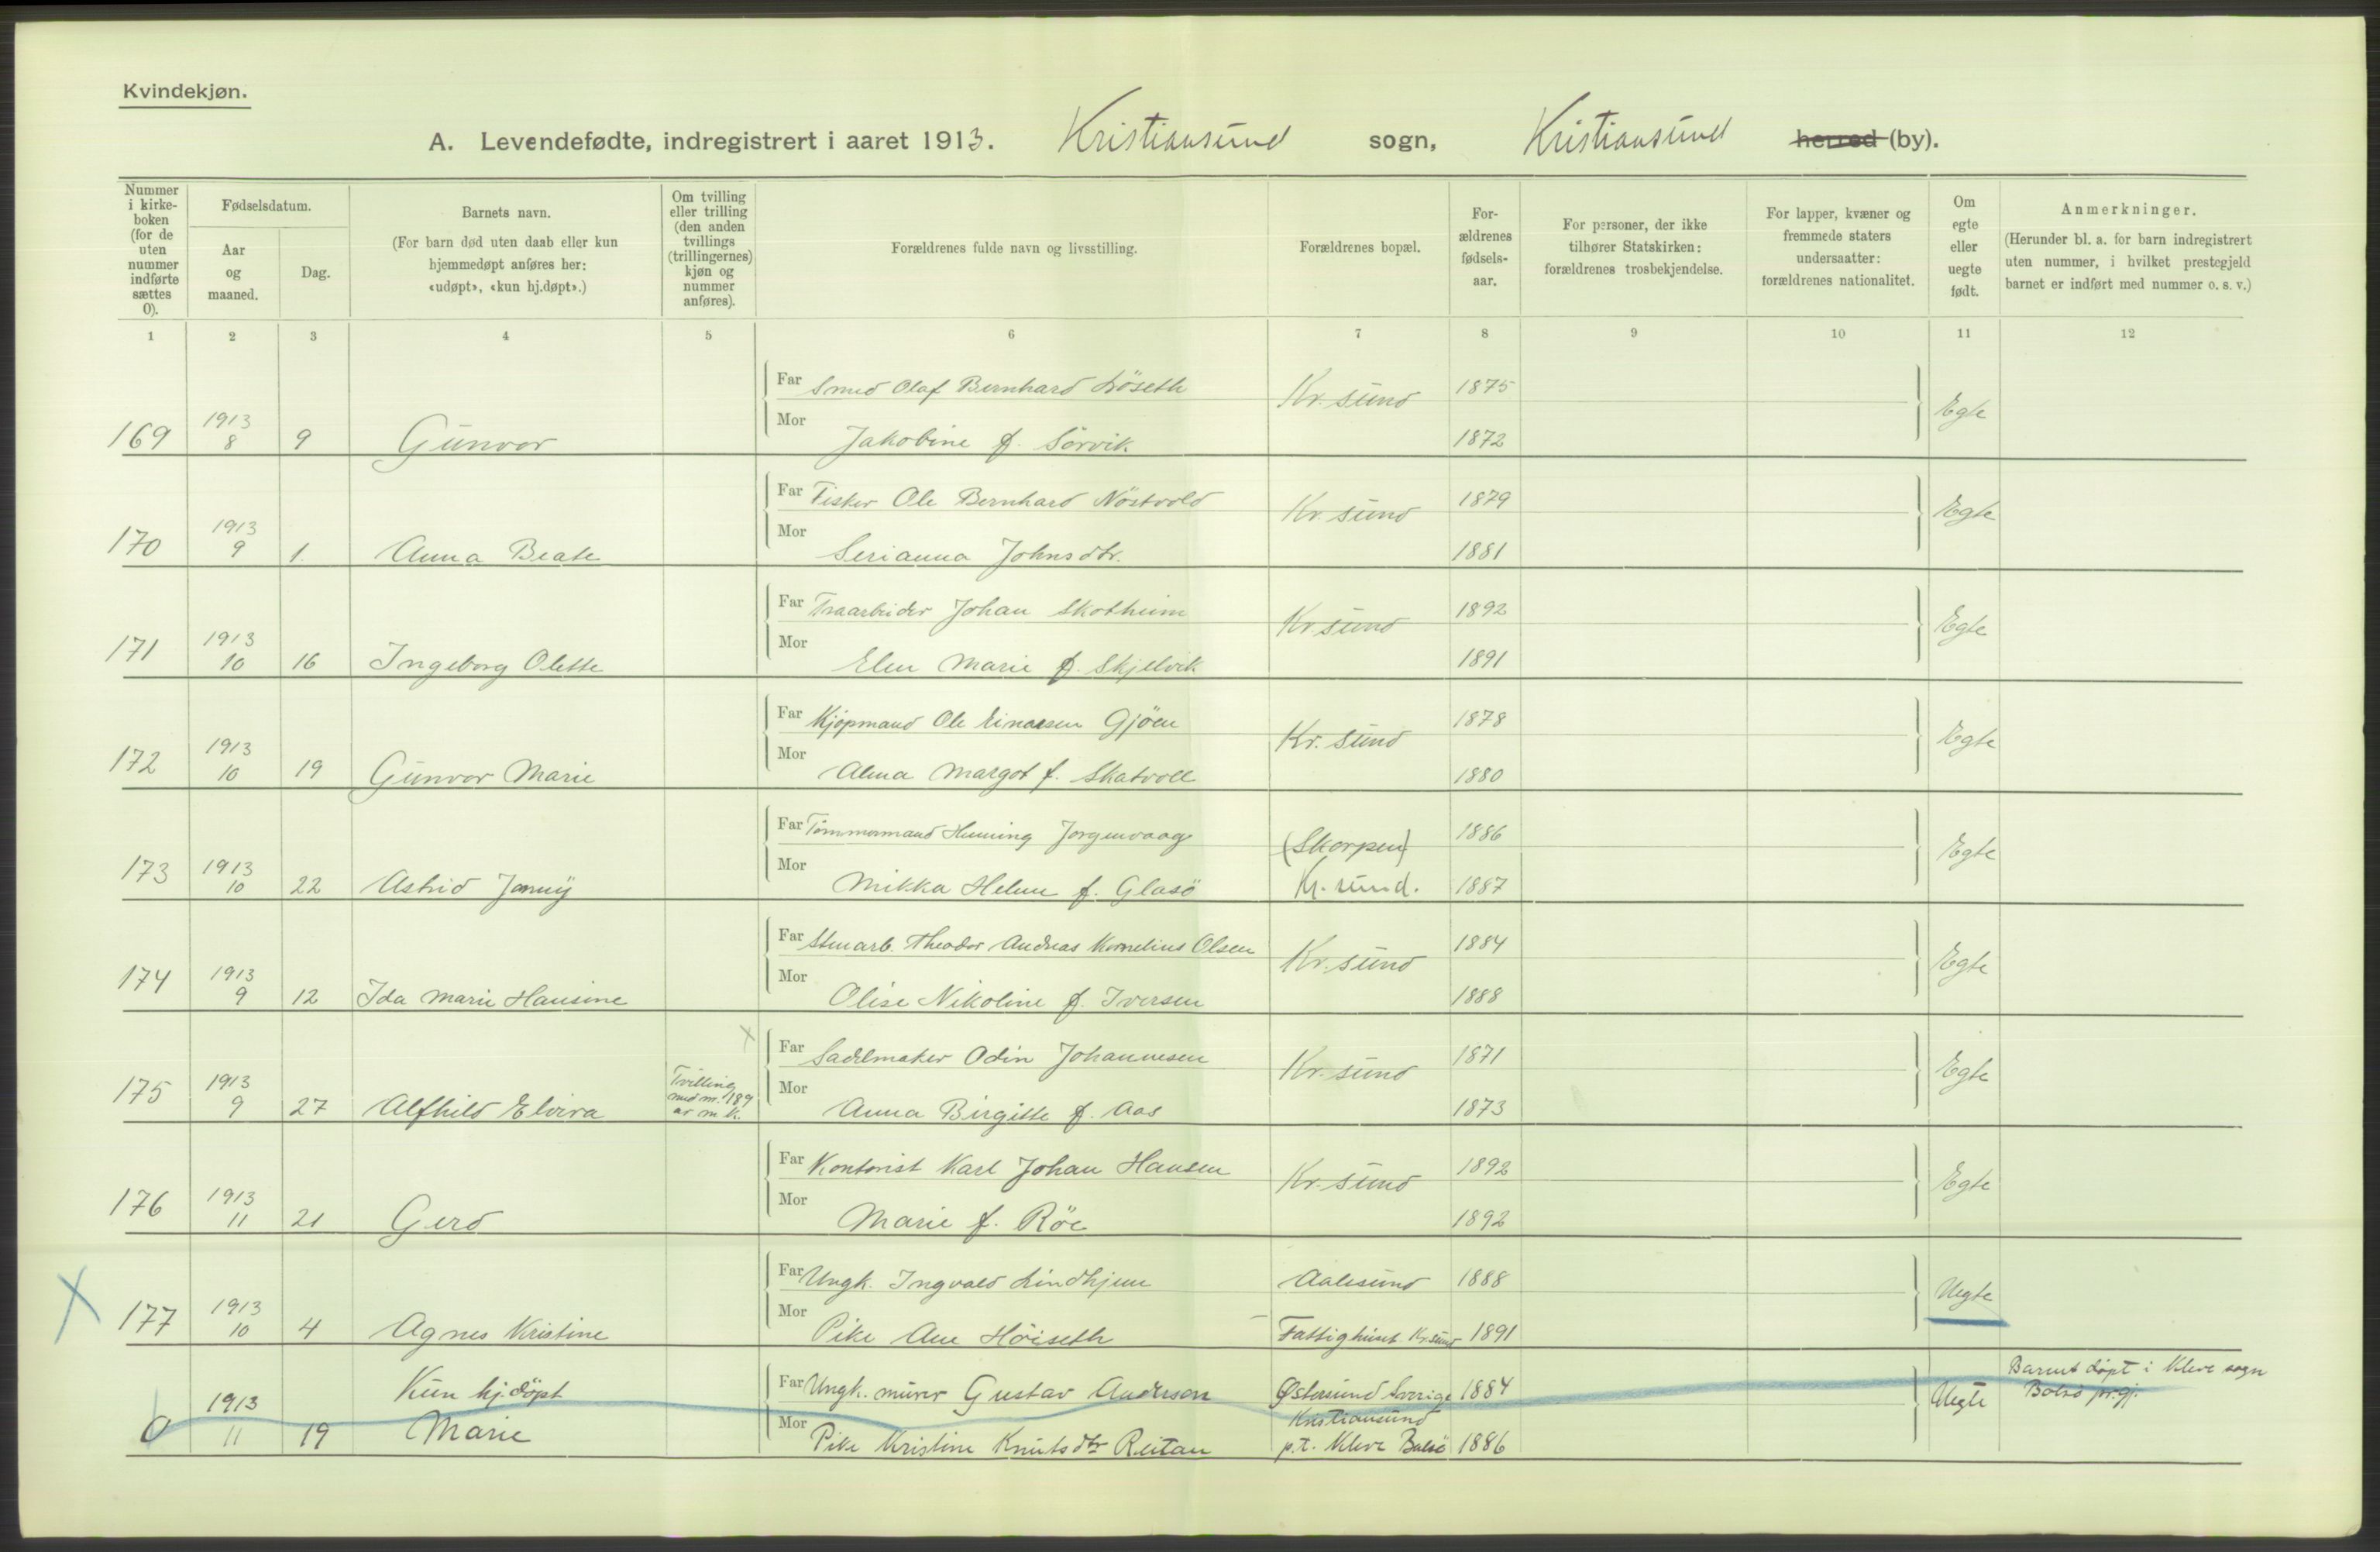 Kvindekjøn.
A. Levendefødte, indregistrert i aaret 1913. Kristiansund sogn, Kristiansund herred (by).
Nummer i kirke-boken (for de uten nummer indførte sættes 0).
Fødselsdatum.
Aar og maaned.
Dag.
Barnets navn.
(For barn død uten daab eller kun hjemmedøpt anføres her: «udøpt», «kun hj.døpt».)
Om tvilling eller trilling (den anden tvillings (trillingernes) kjøn og nummer anføres).
Forældrenes fulde navn og livsstilling.
Forældrenes bopæl.
For-ældrenes fødsels-aar.
For personer, der ikke tilhører Statskirken: forældrenes trosbekjendelse.
For lapper, kvæner og fremmede staters undersaatter: forældrenes nationalitet.
Om egte eller uegte født.
Anmerkninger.
(Herunder bl. a. for barn indregistrert uten nummer, i hvilket prestegjeld barnet er indført med nummer o. s. v.)
1 2 3 4 5 6 7 8 9 10 11 12
Far Smed Olaf Bernhard Löseth Kr. sund 1875
169 1913 8 9 Gunvor Mor Jakobine f. Sörvik 1872 Egte
Far Fisker Ole Bernhard Nöstvold Kr. sund 1879
170 1913 9 1. Anna Beate Mor Serianna Johnsdtr. 1881 Egte
Far Traarbeider Johan Skotheim Kr. sund 1892
171 1913 10 16 Ingeborg Olette Mor Elen Marie f. Skjelvik 1891 Egte
Far Kjöpmand Ole Einarsen Gjöen Kr. sund 1878
172 1913 10 19 Gunvor Marie Mor Alma Margot f. Skatvoll 1880 Egte
Far Tömmermand Henning Jorgenvaag (Skorpen) 1886
173 1913 10 22 Astrid Jenny Mor Mikka Helene f. Glasö Kr. sund. 1887 Egte
Far Stenarb. Theodor Andreas Kornelius Olsen Kr. sund 1884
174 1913 9 12 Ida Marie Hansine Mor Olise Nikoline f. Iversen 1888 Egte
Far Sadelmaker Odin Johannesen Kr. sund 1871
175 1913 9 27 Alfhild Elvira Tvilling med nr. 189 av m. k. Mor Anna Birgitte f. Aas 1873 Egte
Far Kontorist Karl Johan Hansen Kr. sund 1892
176 1913 11 21 Gerd Mor Marie f. Röe 1892 Egte
Far Ungk. Ingvald Lindhjem Aalesund 1888
177 1913 10 4 Agnes Kristine Mor Pike Ane Höiseth Fattighuset Kr.sund 1891 Uegte
Kun hj.döpt Far Ungk. murer Gustav Anderson Østersund Sverige 1884 Barnet döpt i Kleve sogn Bolsö pr.gj.
0 1913 11 19 Marie Mor Pike Kristine Knutsdtr Reitan Kristiansund p.t. Kleve Bolsö 1886 Uegte